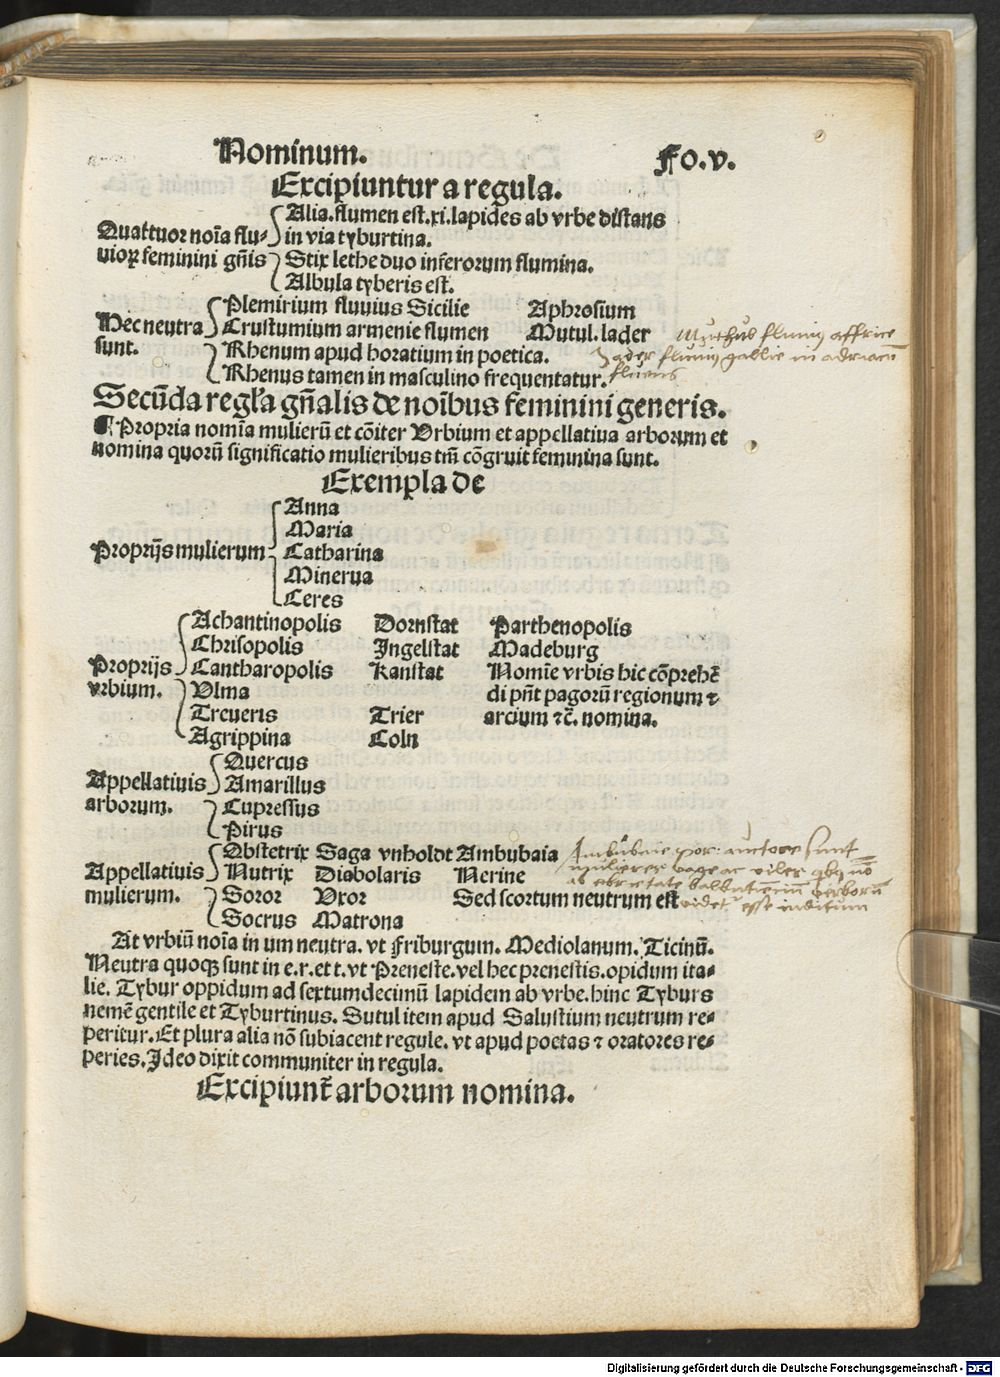 Nominum. Fo.v.
Excipiuntur a regula.
Quattuor noīa flu-
uioꝝ feminini gn̄is
Alia. flumen est. xi. lapides ab vrbe distans
in via tyburtina.
Stix lethe duo inferorum flumina.
Albula tyberis est.
Hec neutra
sunt.
Plemirium fluuius Sicilie Aphrosium
Crustumium armenie flumen Mutul. lader
Rhenum apud horatium in poetica.
Rhenus tamen in masculino frequentatur.
fluuiꝰ affrice
fluuiꝰ gallie in adriacū
fluens
Secūda regl̄a gn̄alis de noībus feminini generis.
¶ Propria nomīa mulierū et cōiter Vrbium et appellatiua arborum et
nomina quorū significatio mulieribus tm̄ cōgruit feminina sunt.
Exempla de
Proprijs mulierum
Anna
Maria
Catharina
Minerua
Ceres
Proprijs
vrbium.
Achantinopolis Dornstat Parthenopolis
Chrisopolis Ingelstat Madeburg
Cantharopolis Kanstat Nomīe vrbis hic cōprehē
Vlma di pn̄t pagorū regionum ⁊
Treueris Trier arcium ⁊c̄. nomina.
Agrippina Coln
Appellatiuis
arborum.
Quercus
Amarillus
Cupressus
Pirus
Appellatiuis
mulierum.
Obstetrix Saga vnholdt Ambubaia
Nutrix Diobolaris Nerine
Soror Vxor Sed scortum neutrum est
Socrus Matrona
Ambubaie auctore sunt
mulieres vage ac viles nō
ab ebrietate verborū
esse inditum
At vrbiū noīa in um neutra. vt Friburgum. Mediolanum. Ticinū.
Neutra quoqꝫ sunt in e. r. et t. vt Preneste. vel hec prenestis. opidum ita-
lie. Tybur oppidum ad sextumdecimū lapidem ab vrbe. hinc Tyburs
nemē gentile et Tyburtinus. Sutul item apud Salustium neutrum re-
peritur. Et plura alia nō subiacent regule. vt apud poetas ⁊ oratores re-
peries. Ideo dixit communiter in regula.
Excipiunt̄ arborum nomina.
Digitalisierung gefördert durch die Deutsche Forschungsgemeinschaft - DFG